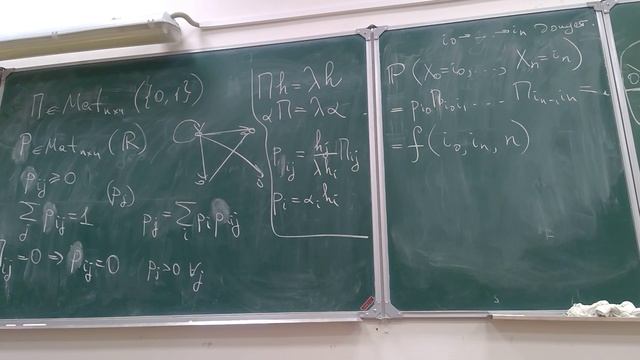 Π ∈ Mat_{n×n} ({0,1})
P ∈ Mat_{n×n} (ℝ)
p_{ij} ≥ 0
(p_j)
∑_j p_{ij} = 1
p_j = ∑_i p_i p_{ij}
Π_{ij} = 0 ⇒ p_{ij} = 0
p_j > 0 ∀j
Πh = λh
αΠ = λα
p_{ij} = h_j / λh_i Π_{ij}
p_i = α_i h_i
i_0 → … → i_n
P (X_0 = i_0, …, X_n = i_n)
= f (i_0, i_n, n)